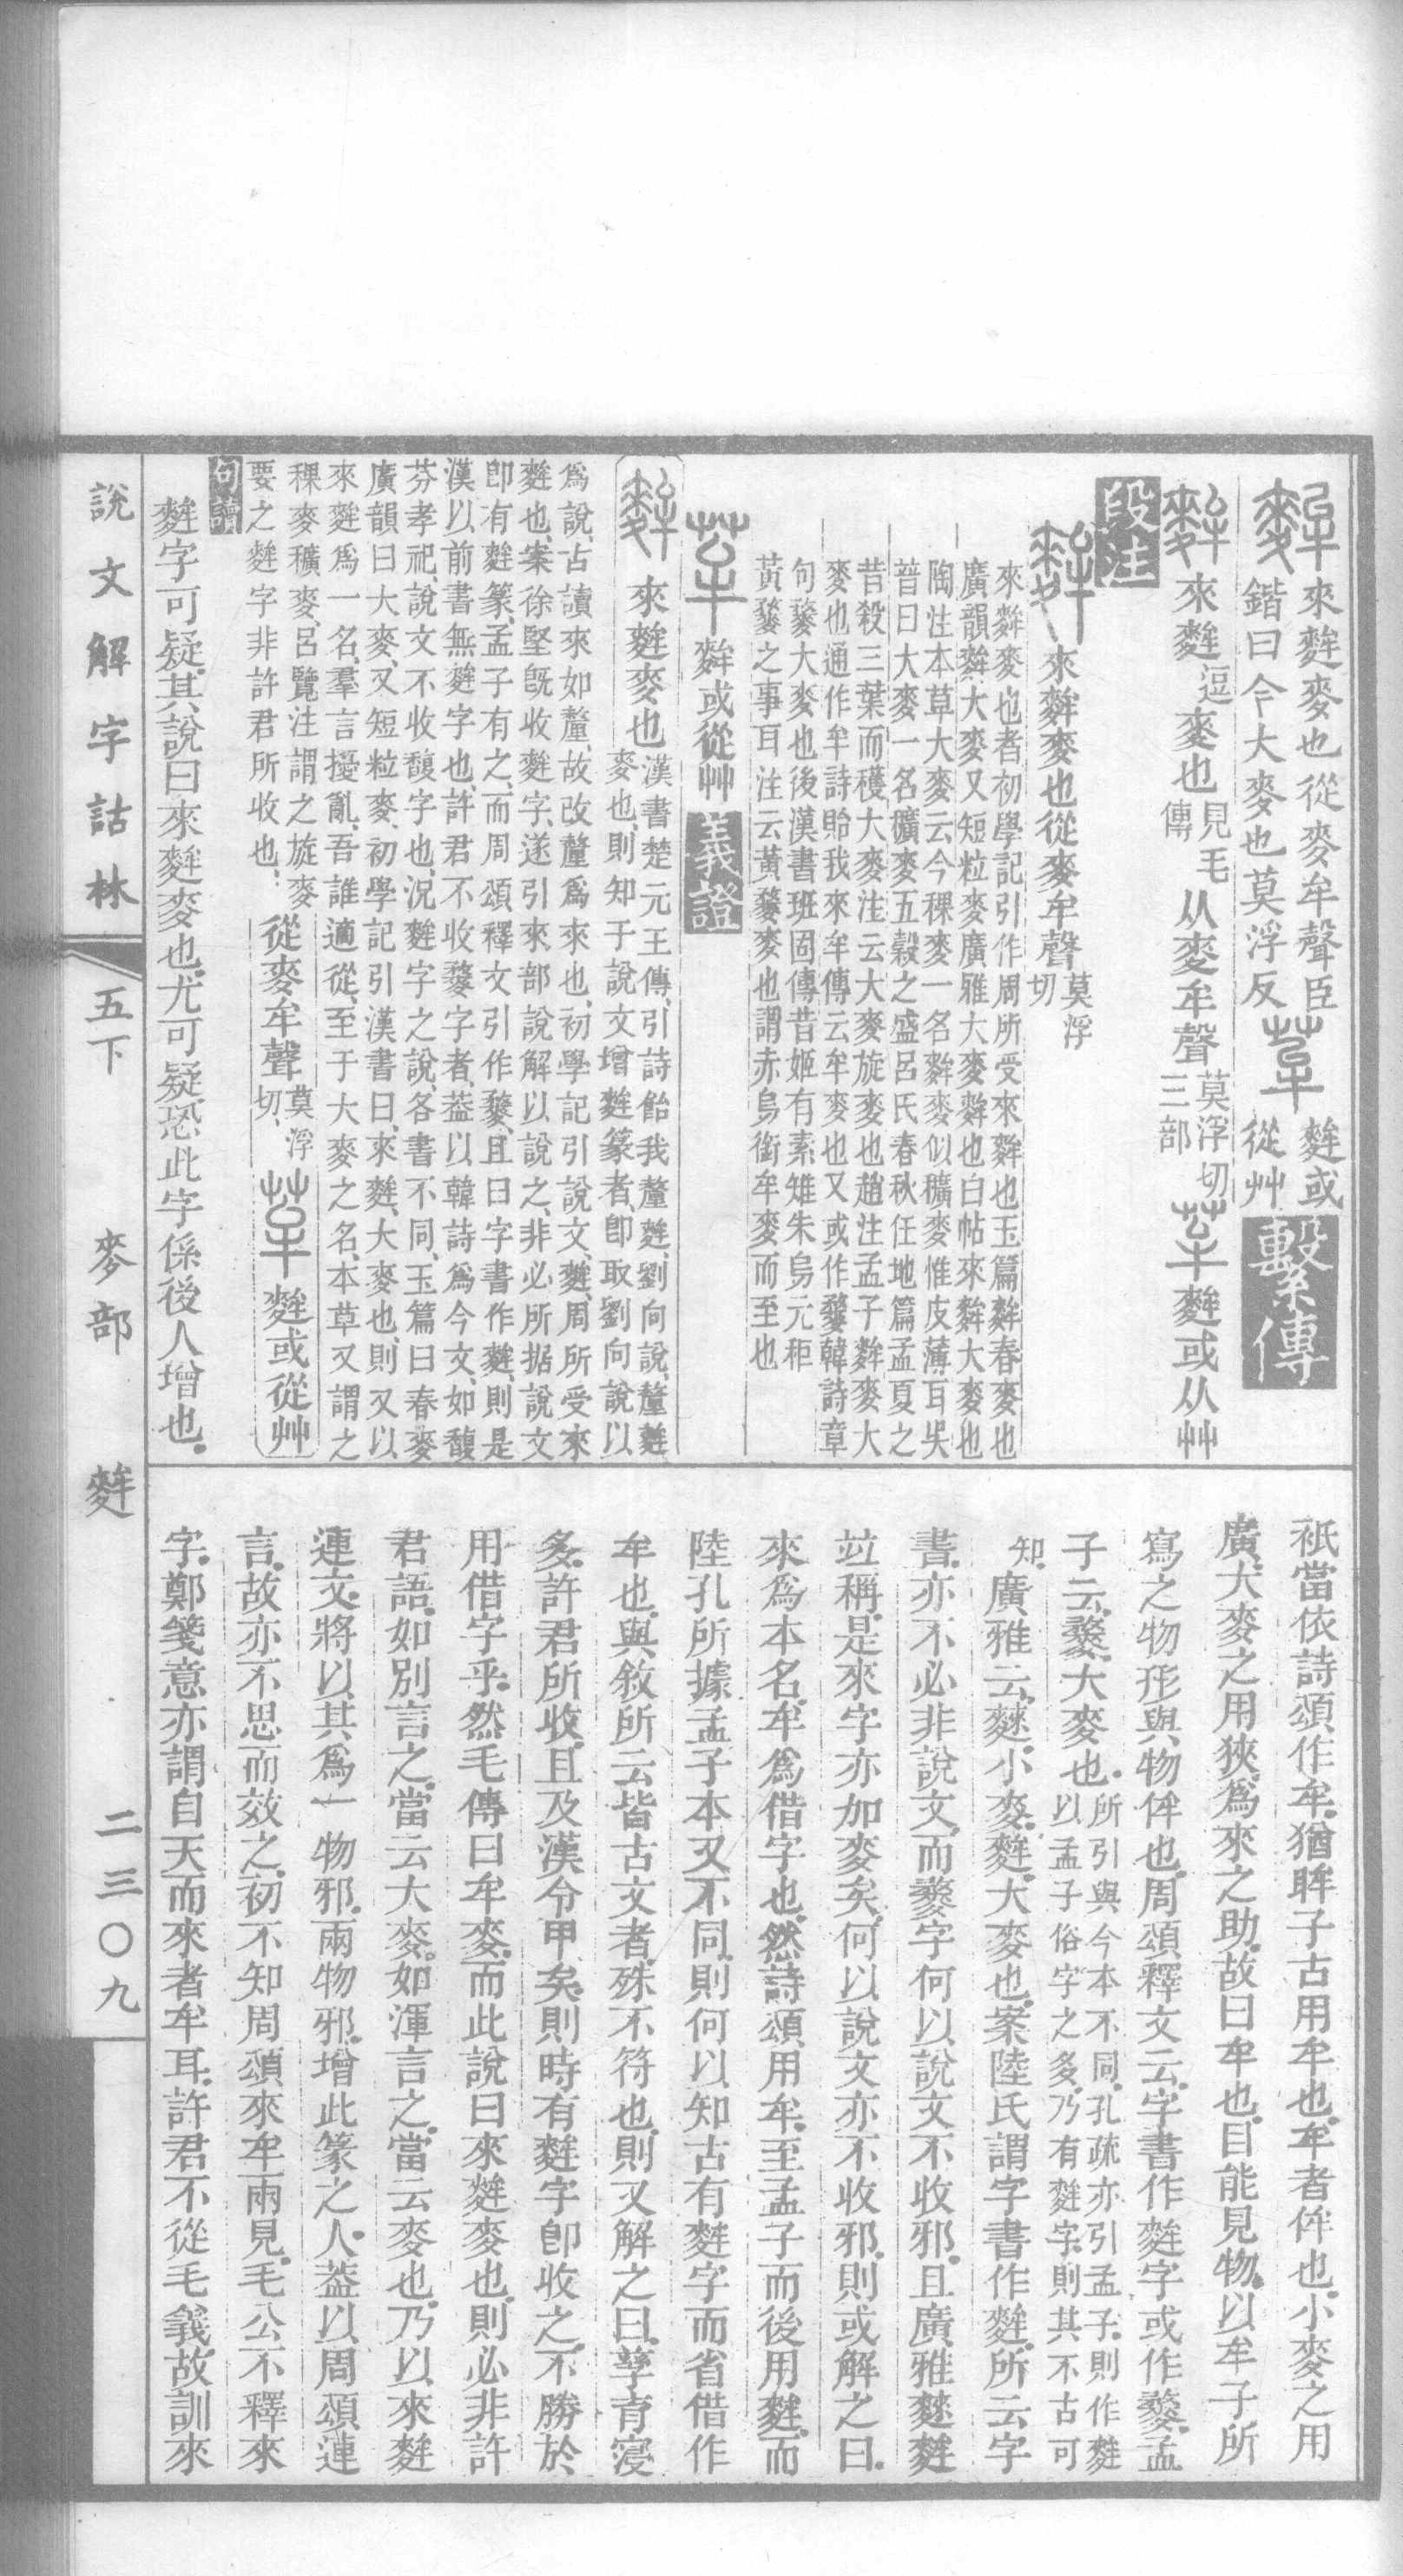 來麰麥也從麥牟聲臣
鍇曰今大麥也莫浮反
麰或
從艸
繫傳
來麰
逗
麥也
見毛
傳
从麥牟聲
莫浮切
三部
麰或从艸
段注
來麰麥也從麥牟聲
莫浮
切
來麰麥也者初學記引作周所受來麰也玉篇麰春麥也
廣韻麰大麥又短粒麥廣雅大麥麰也白帖來麰大麥也
陶注本草大麥云今稞麥一名麰麥似穬麥惟皮薄耳吳
普曰大麥一名穬麥五穀之盛呂氏春秋任地篇孟夏之
昔殺三葉而穫大麥注云大麥旋麥也趙注孟子麰麥大
麥也通作牟詩貽我來牟傳云牟麥也又或作𪍓韓詩章
句𪍓大麥也後漢書班固傳昔姬有素雉朱烏元秬
黃𪍓之事耳注云黃𪍓麥也謂赤烏銜牟麥而至也
麰或從艸
義證
來麰麥也
漢書楚元王傳引詩飴我釐麰、劉向說、釐麰
麥也、則知于說文增麰篆者、卽取劉向說以
爲說、古讀來如釐、故改釐爲來也、初學記引說文、麰、周所受來
麰也、案徐堅旣收麰字、遂引來、部說解以說之、非必所据說文
卽有麰篆、孟子有之、而周頌釋文引作𪍓、且曰字書作麰、則是
漢以前書無麰字也、許君不收𪍓字者、葢以韓詩爲今文、如馥
芬孝祀、說文不收馥字也、況麰字之說、各書不同、玉篇曰春麥
廣韻曰大麥、又短粒麥、初學記引漢書曰、來麰、大麥也、則又以
來麰爲一名、羣言擾亂、吾誰適從、至于大麥之名、本草又謂之
稞麥穬麥、呂覽注謂之旋麥
要之麰字非許君所收也、
從麥牟聲
莫浮
切、
麰或從艸
句讀
麰字可疑。其說曰來麰麥也。尤可疑。恐此字係後人增也。
祇當依詩頌作牟。猶眸子古用牟也。牟者侔也。小麥之用
廣。大麥之用狹。爲來之助。故曰牟也。目能見物。以牟子所
寫之物形與物侔也。周頌釋文云。字書作麰字或作𪍓。孟
子云。𪍓。大麥也。
所引與今本不同。孔疏亦引孟子。則作麰
以孟子俗字之多。乃有麰字。則其不古可
知。
廣雅云。麳。小麥。麰。大麥也。案陸氏謂字書作麰。所云字
書。亦不必非說文。而𪍓字何以說文不收邪。且廣雅麳麰
竝稱。是來字亦加麥矣。何以說文亦不收邪。則或解之曰。
來爲本名。牟爲借字也。然詩頌用牟。至孟子而後用麰。而
陸孔所據孟子本又不同。則何以知古有麰字而省借作
牟也。與敘所云皆古文者。殊不符也。則又解之曰。孳育寖
多。許君所收。且及漢令甲矣。則時有麰字卽收之。不勝於
用借字乎。然毛傳曰牟麥。而此說曰來麰麥也。則必非許
君語。如別言之。當云大麥。如渾言之。當云麥也。乃以來麰
連文。將以其爲一物邪。兩物邪。增此篆之人。葢以周頌連
言。故亦不思而效之。初不知周頌來牟兩見。毛公不釋來
字。鄭箋意亦謂自天而來者牟耳。許君不從毛義。故訓來
說文解字詁林
五下
麥部
麰
二三〇九